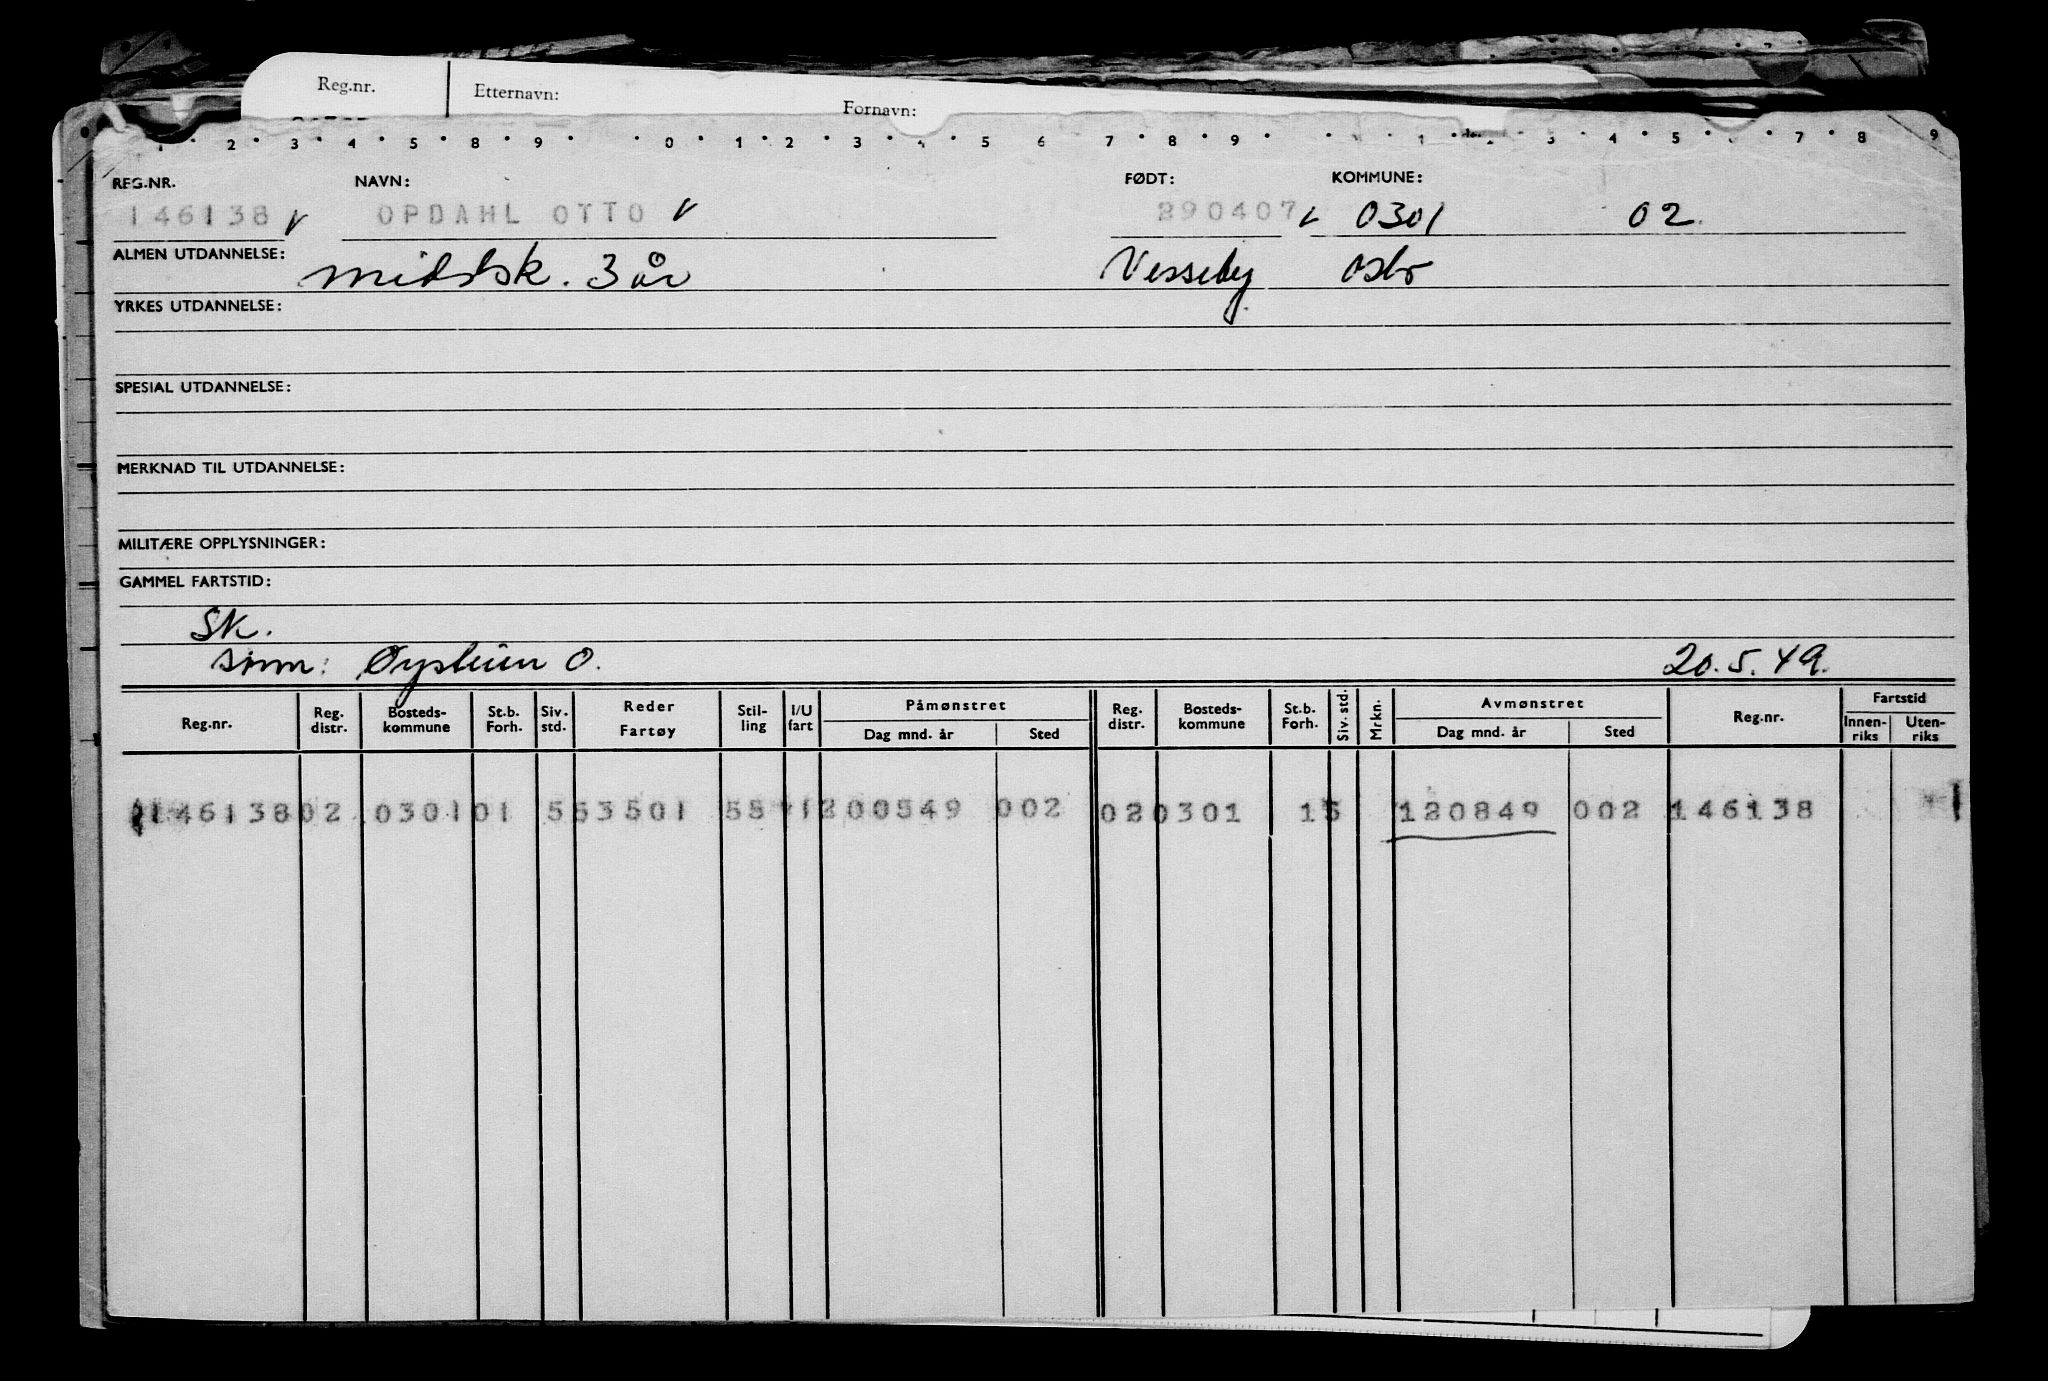 Reg.nr. Etternavn: Fornavn:
1 2 3 4 5 8 9 0 1 2 3 4 5 6 7 8 9 1 2 3 4 5 6 7 8 9
REG.NR. NAVN: FØDT: KOMMUNE:
146138 OPDAHL OTTO 290407 0301 02
ALMEN UTDANNELSE: middsk. 3 år Vesseby Oslo
YRKES UTDANNELSE:
SPESIAL UTDANNELSE:
MERKNAD TIL UTDANNELSE:
MILITÆRE OPPLYSNINGER:
GAMMEL FARTSTID:
SK.
sønn: Øystein O. 20.5.49.
Reg.nr. Reg. distr. Bosteds-kommune St.b. Forh. Siv. std. Reder Fartøy Stil-ling I/U fart Påmønstret Dag mnd. år Sted Reg. distr. Bosteds-kommune St.b. Forh. Siv. std. Mrkn. Avmønstret Dag mnd. år Sted Reg.nr. Fartstid Innen-riks Uten-riks
146138 02 0301 01 5 53501 55 1 200549 002 02 0301 15 120849 002 146138